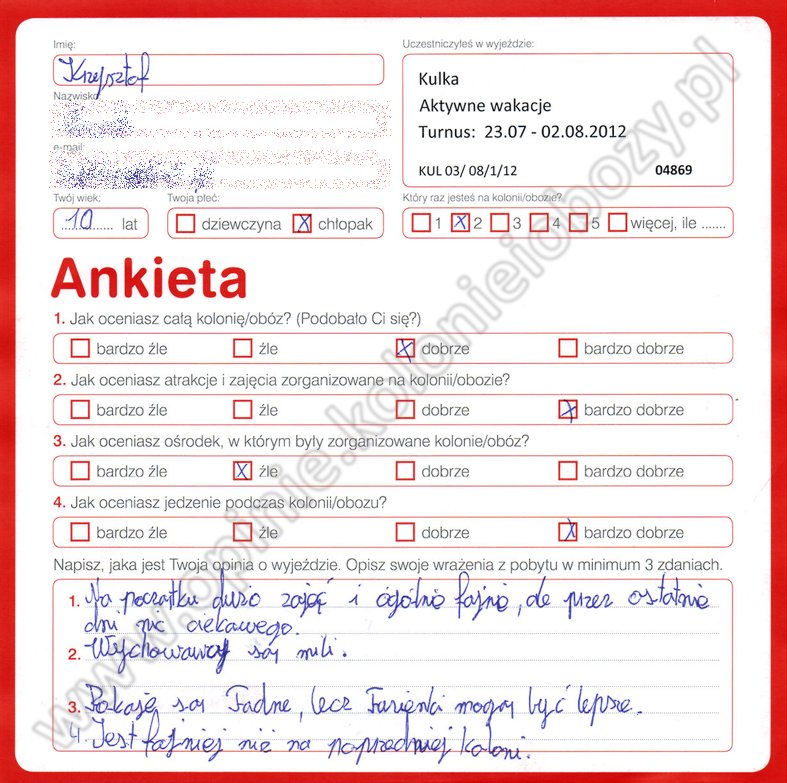 Imię:
Uczestniczyłeś w wyjeździe:
Krzysztof
Kulka
Aktywne wakacje
Turnus: 23.07 - 02.08.2012
KUL 03/ 08/1/12 04869
Nazwisko
e-mail:
Twój wiek: Twoja płeć: Który raz jesteś na kolonii/obozie?
10 lat dziewczyna X chłopak 1 X 2 3 4 5 więcej, ile .......
Ankieta
1. Jak oceniasz całą kolonię/obóz? (Podobało Ci się?)
bardzo źle źle X dobrze bardzo dobrze
2. Jak oceniasz atrakcje i zajęcia zorganizowane na kolonii/obozie?
bardzo źle źle dobrze X bardzo dobrze
3. Jak oceniasz ośrodek, w którym były zorganizowane kolonie/obóz?
bardzo źle X źle dobrze bardzo dobrze
4. Jak oceniasz jedzenie podczas kolonii/obozu?
bardzo źle źle dobrze X bardzo dobrze
Napisz, jaka jest Twoja opinia o wyjeździe. Opisz swoje wrażenia z pobytu w minimum 3 zdaniach.
1. Na początku dużo zajęć i ogólnie fajnie, ale przez ostatnie
dni nic ciekawego.
2. Wychowawcy są mili.
3. Pokoje są ładne, lecz łazienki mogą być lepsze.
4. Jest fajniej niż na poprzedniej koloni.
www.opinie.kolonieiobozy.pl